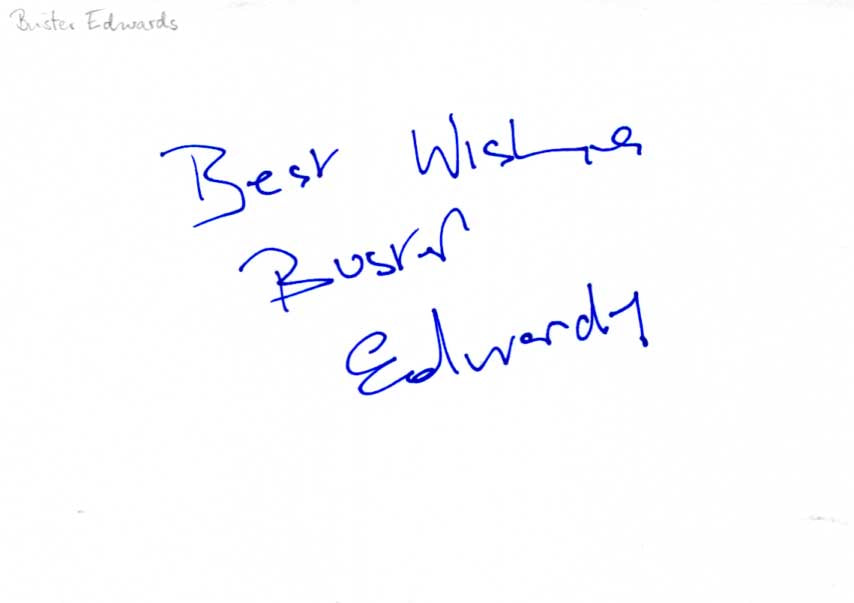 Buster Edwards
Best Wishes
Buster
Edwards